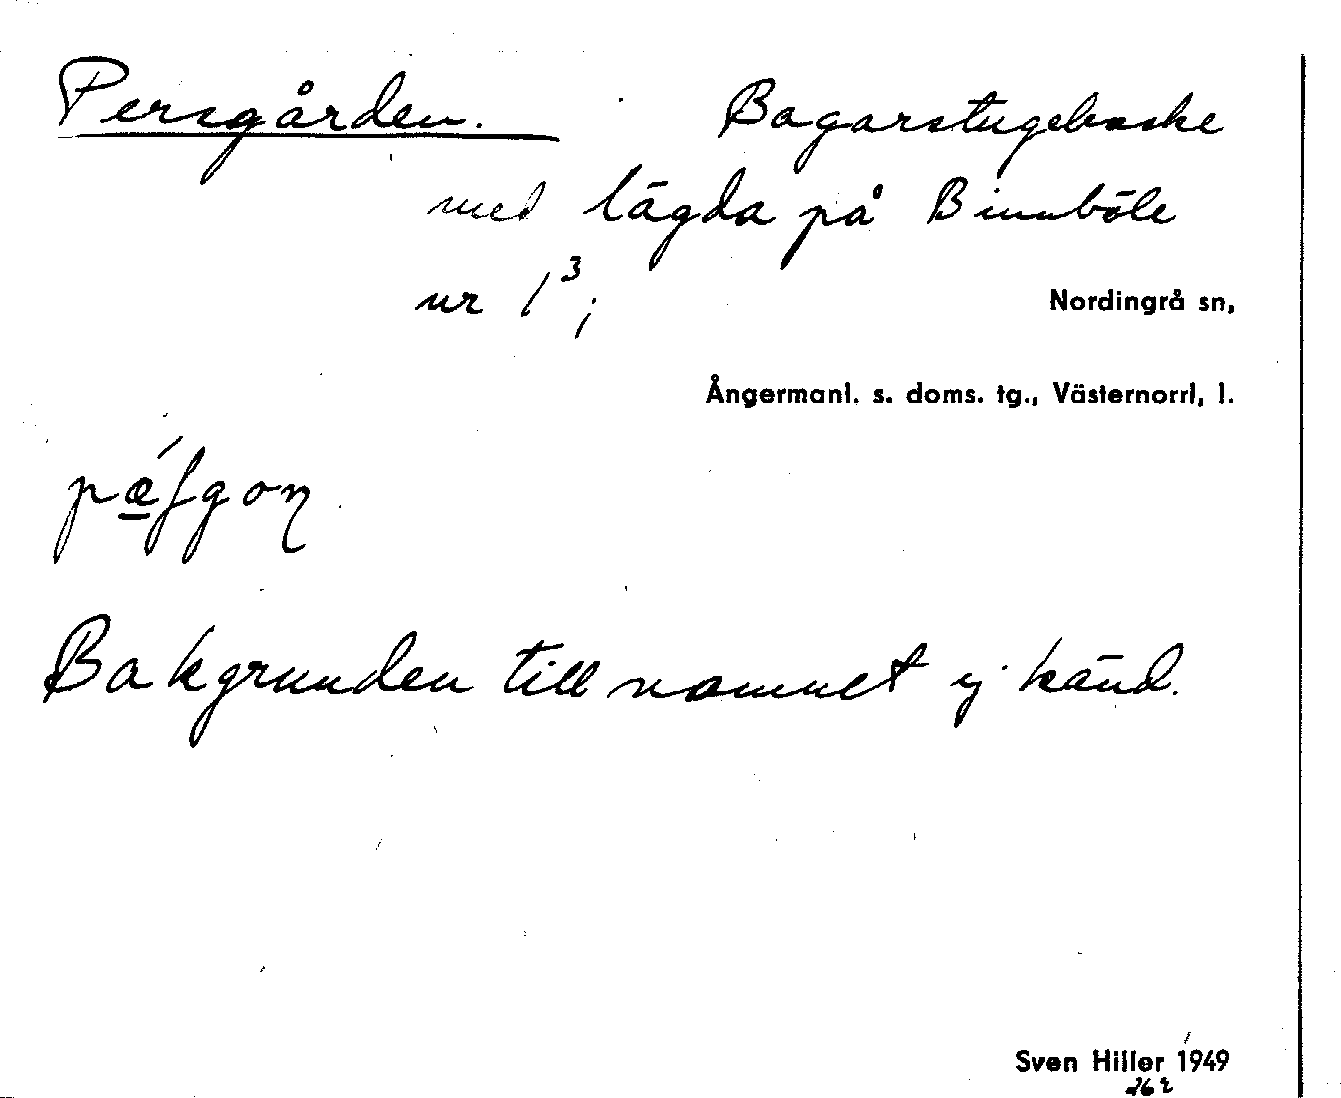 Persgården. Bagarstugebacke
med lägda på Binnböle
nr 1³;
Nordingrå sn,
Ångermanl. s. doms. tg., Västernorrl, l.
pǽ̱ſgoɳ
Bakgrunden till namnet ej känd.
Sven Hiller 1949